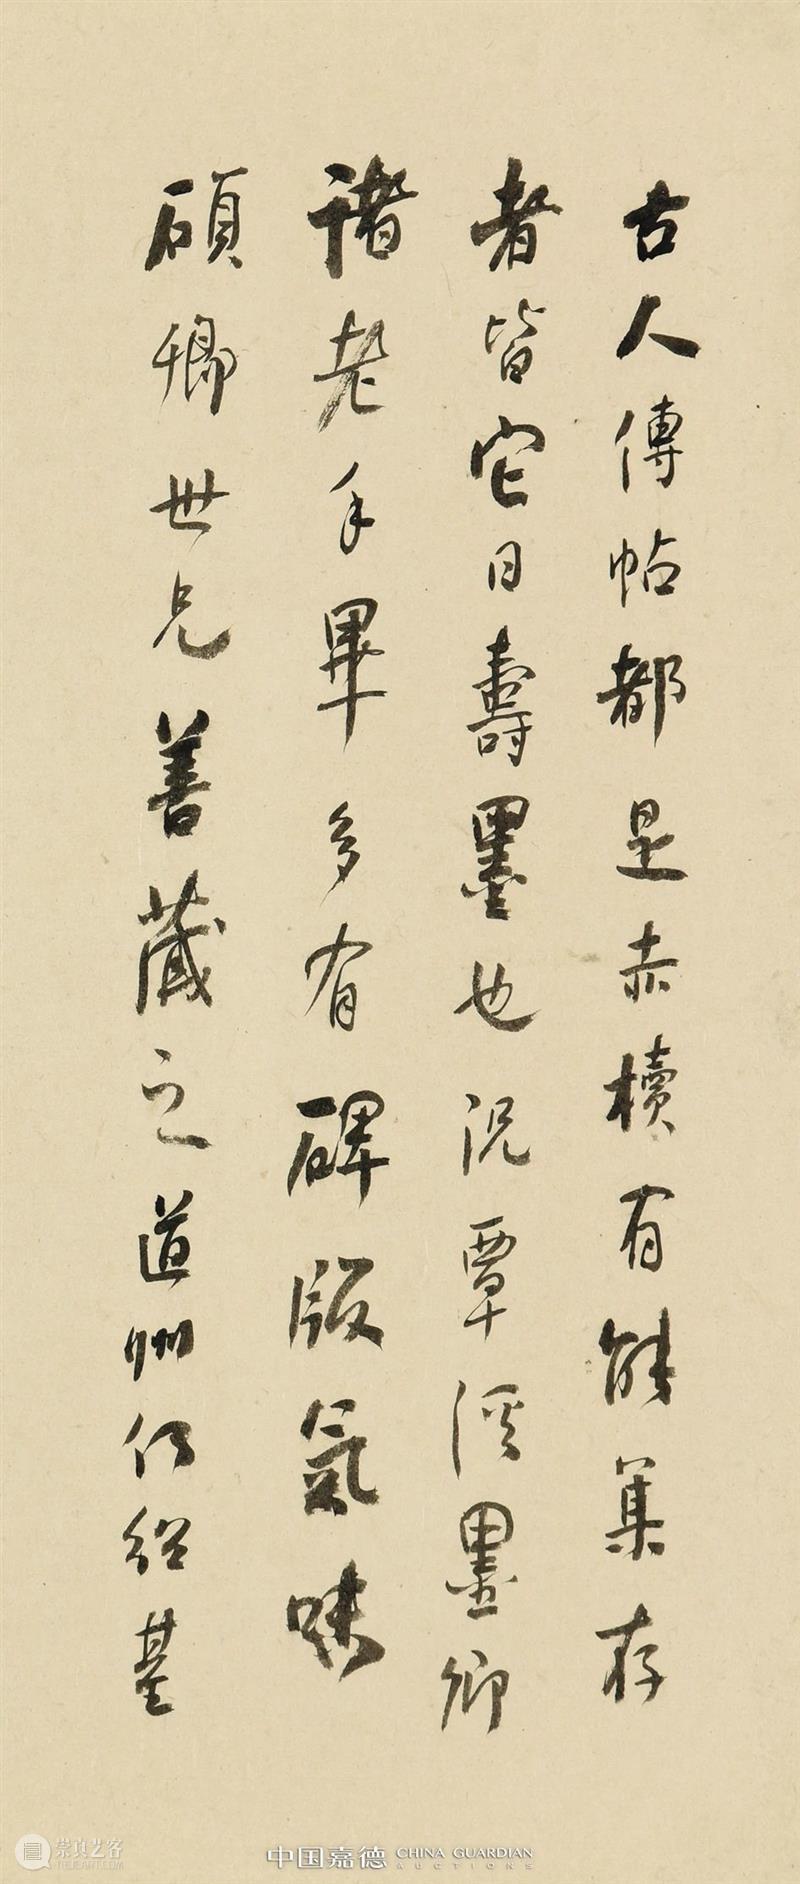 古人傳帖都是赤牘有能集存
者皆它日壽墨也況覃溪墨卿
諸老手畢多有碑版氣味
碩卿世兄善藏之道州何紹基
崇真艺客
TRUEART.COM
中国嘉德 CHINA GUARDIAN
AUCTIONS